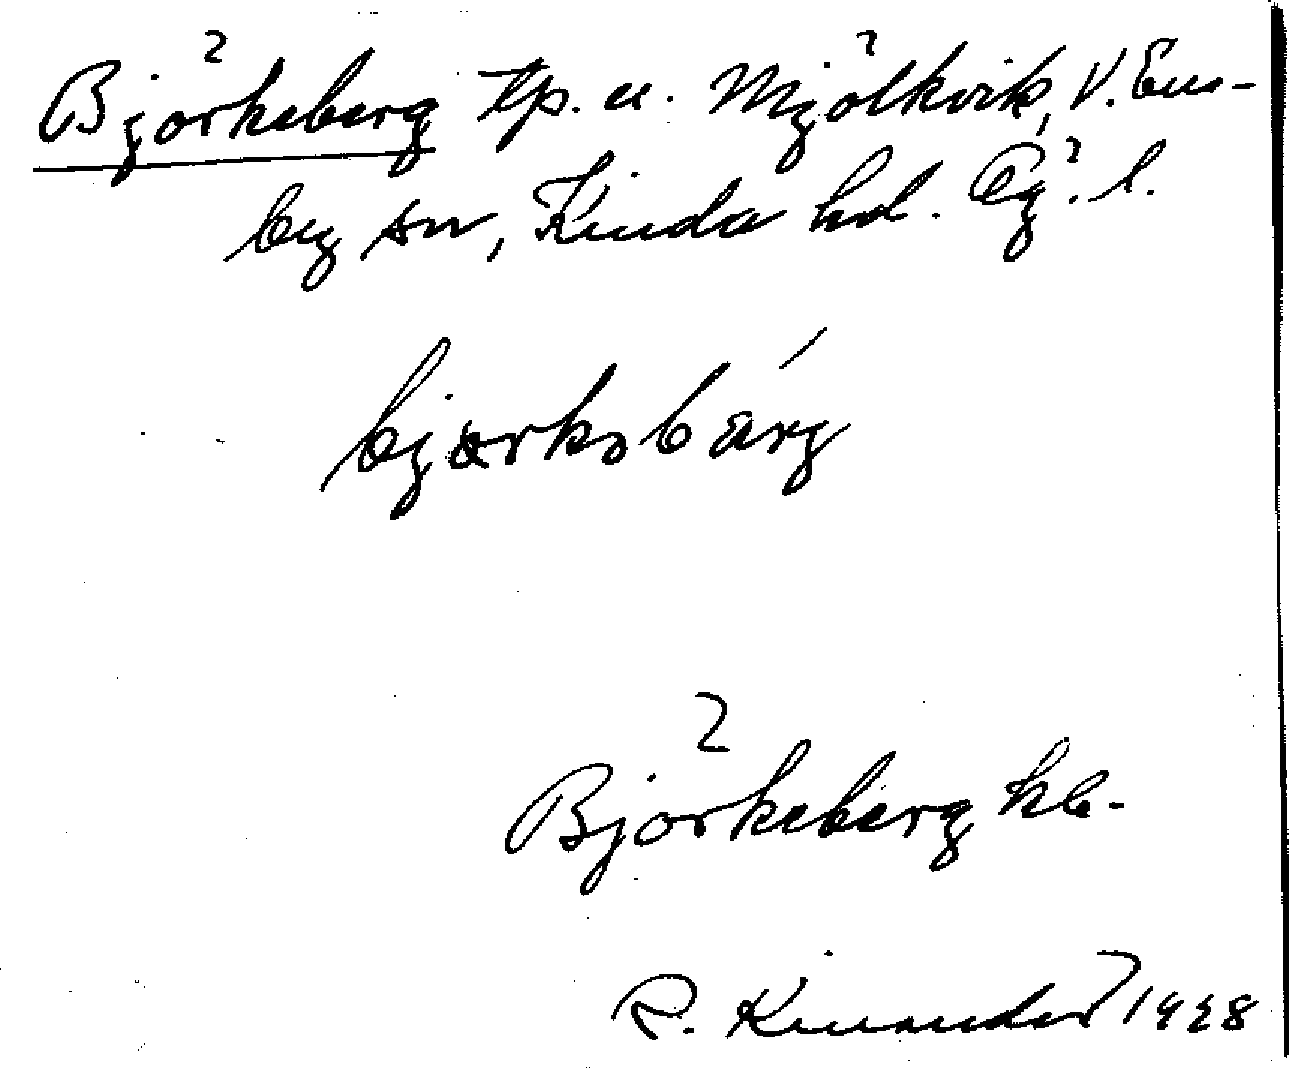 Björkeberg tp. u. Mjölkvik, V. Ene-
by sn, Kinda hd. Ög. l.
bjørksbárg
Björkeberg kb.
R. Kinander 1928